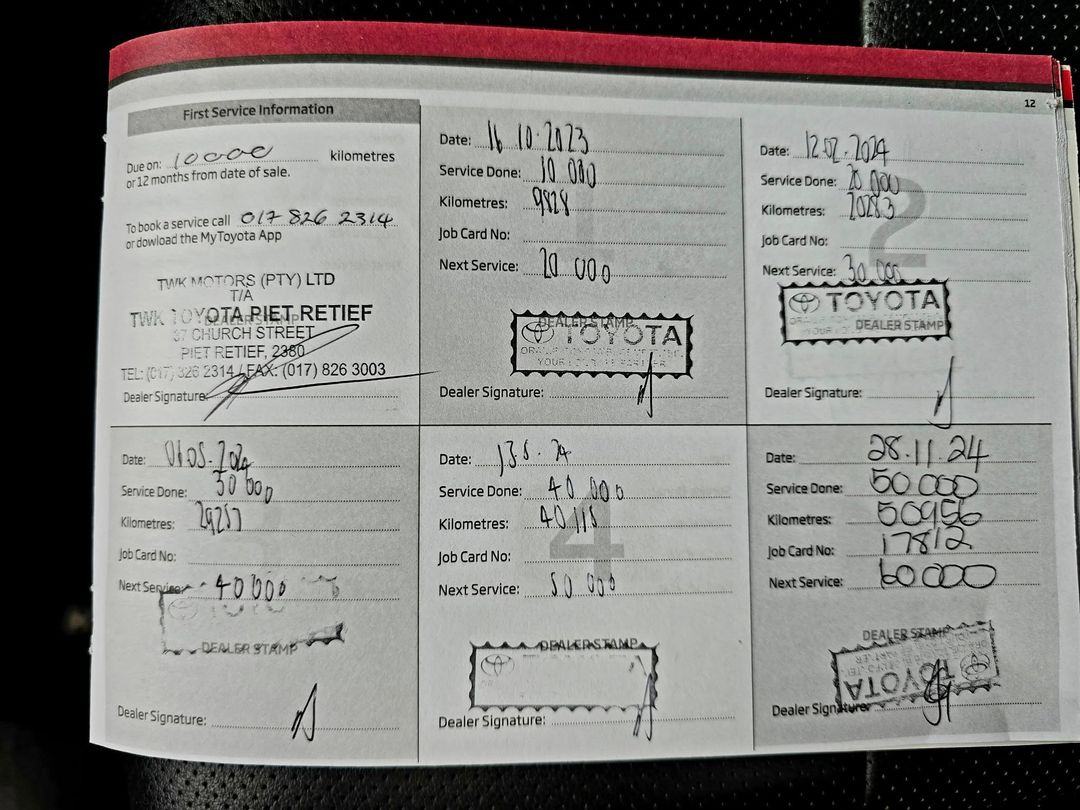 12
First Service Information
Due on: 10000 kilometres
or 12 months from date of sale.
To book a service call 017 826 2314
or dowload the MyToyota App
TWK MOTORS (PTY) LTD
T/A
TWK TOYOTA PIET RETIEF
DEALER STAMP
37 CHURCH STREET
PIET RETIEF, 2380
TEL: (017) 826 2314 / FAX: (017) 826 3003
Dealer Signature:
Date: 16 10.2023
Service Done: 10 000
Kilometres: 9828
Job Card No:
Next Service: 20 000
1
DEALER STAMP
TOYOTA
Dealer Signature:
Date: 12.02.2024
Service Done: 20 000
Kilometres: 20283
Job Card No:
Next Service: 30 000
2
TOYOTA
DEALER STAMP
Dealer Signature:
Date:
Service Done: 30 000
Kilometres: 29257
Job Card No:
Next Service: 40 000
DEALER STAMP
Dealer Signature:
Date:
Service Done: 40 000
Kilometres: 40115
Job Card No:
Next Service: 50 000
4
DEALER STAMP
Dealer Signature:
Date: 28.11.24
Service Done: 50 000
Kilometres: 50956
Job Card No: 17812
Next Service: 60000
DEALER STAMP
TOYOTA
Dealer Signature: